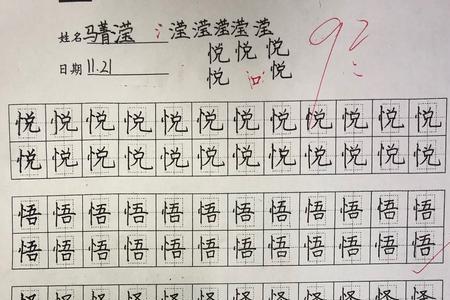 姓名 马菁滢 氵 滢滢滢滢滢 92
悦 悦 悦
日期 11.21 悦 口 悦
悦 悦 悦 悦 悦 悦 悦 悦 悦 悦 悦 悦
悦 悦 悦 悦 悦 悦 悦 悦 悦 悦 悦 悦
悟 悟 悟 悟 悟 悟 悟 悟 悟 悟 悟 悟
悟 悟 悟 悟 悟 悟 悟 悟 悟 悟 悟 悟